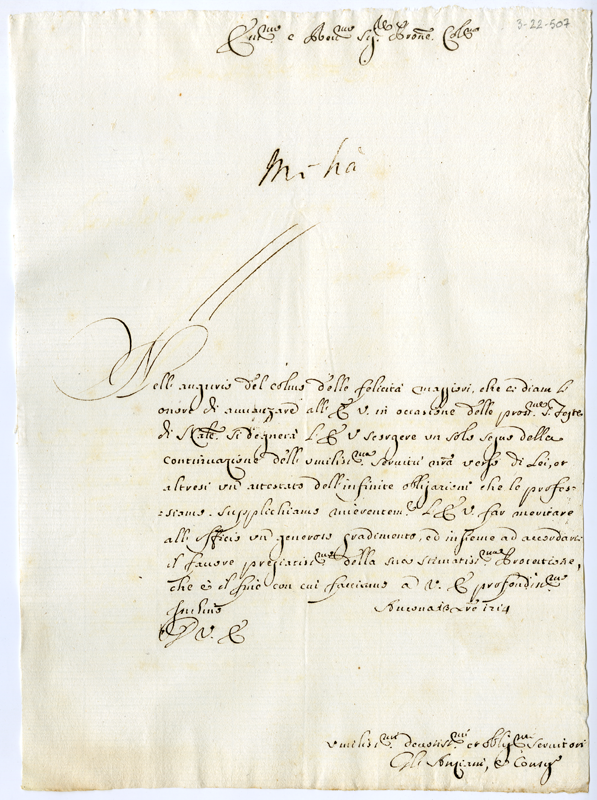 3-22-507
Em.mo e Rev.mo Sig.r Prone Col.mo
Mi-hà
Nell augurio del colmo delle felicità maggiori, che ci diam l'
onore di auuanzare all' E. V. in occasione delle pross.me S. Feste
di Nale. si degnerà L' E V scorgere un solo segno della
continuazione dell' umiliss.ma seruitù nrã verso di Lei, et
altresi un attestato dell' infinite obligazioni che le profes-
-siamo. supplichiamo L' E V. far meritare
all' officio un generoso gradimento, ed insieme ad accordarci
il fauore pregiatiss.mo della sua stimatiss.ma Protettione,
che è il fine con cui facciamo a V. E profondiss.mo
inchino Ancona Xre 1714
D V. E
Umiliss.mi deuotiss.mi et oblig.mi Seruitori
Gli Anziani, e Consig.o